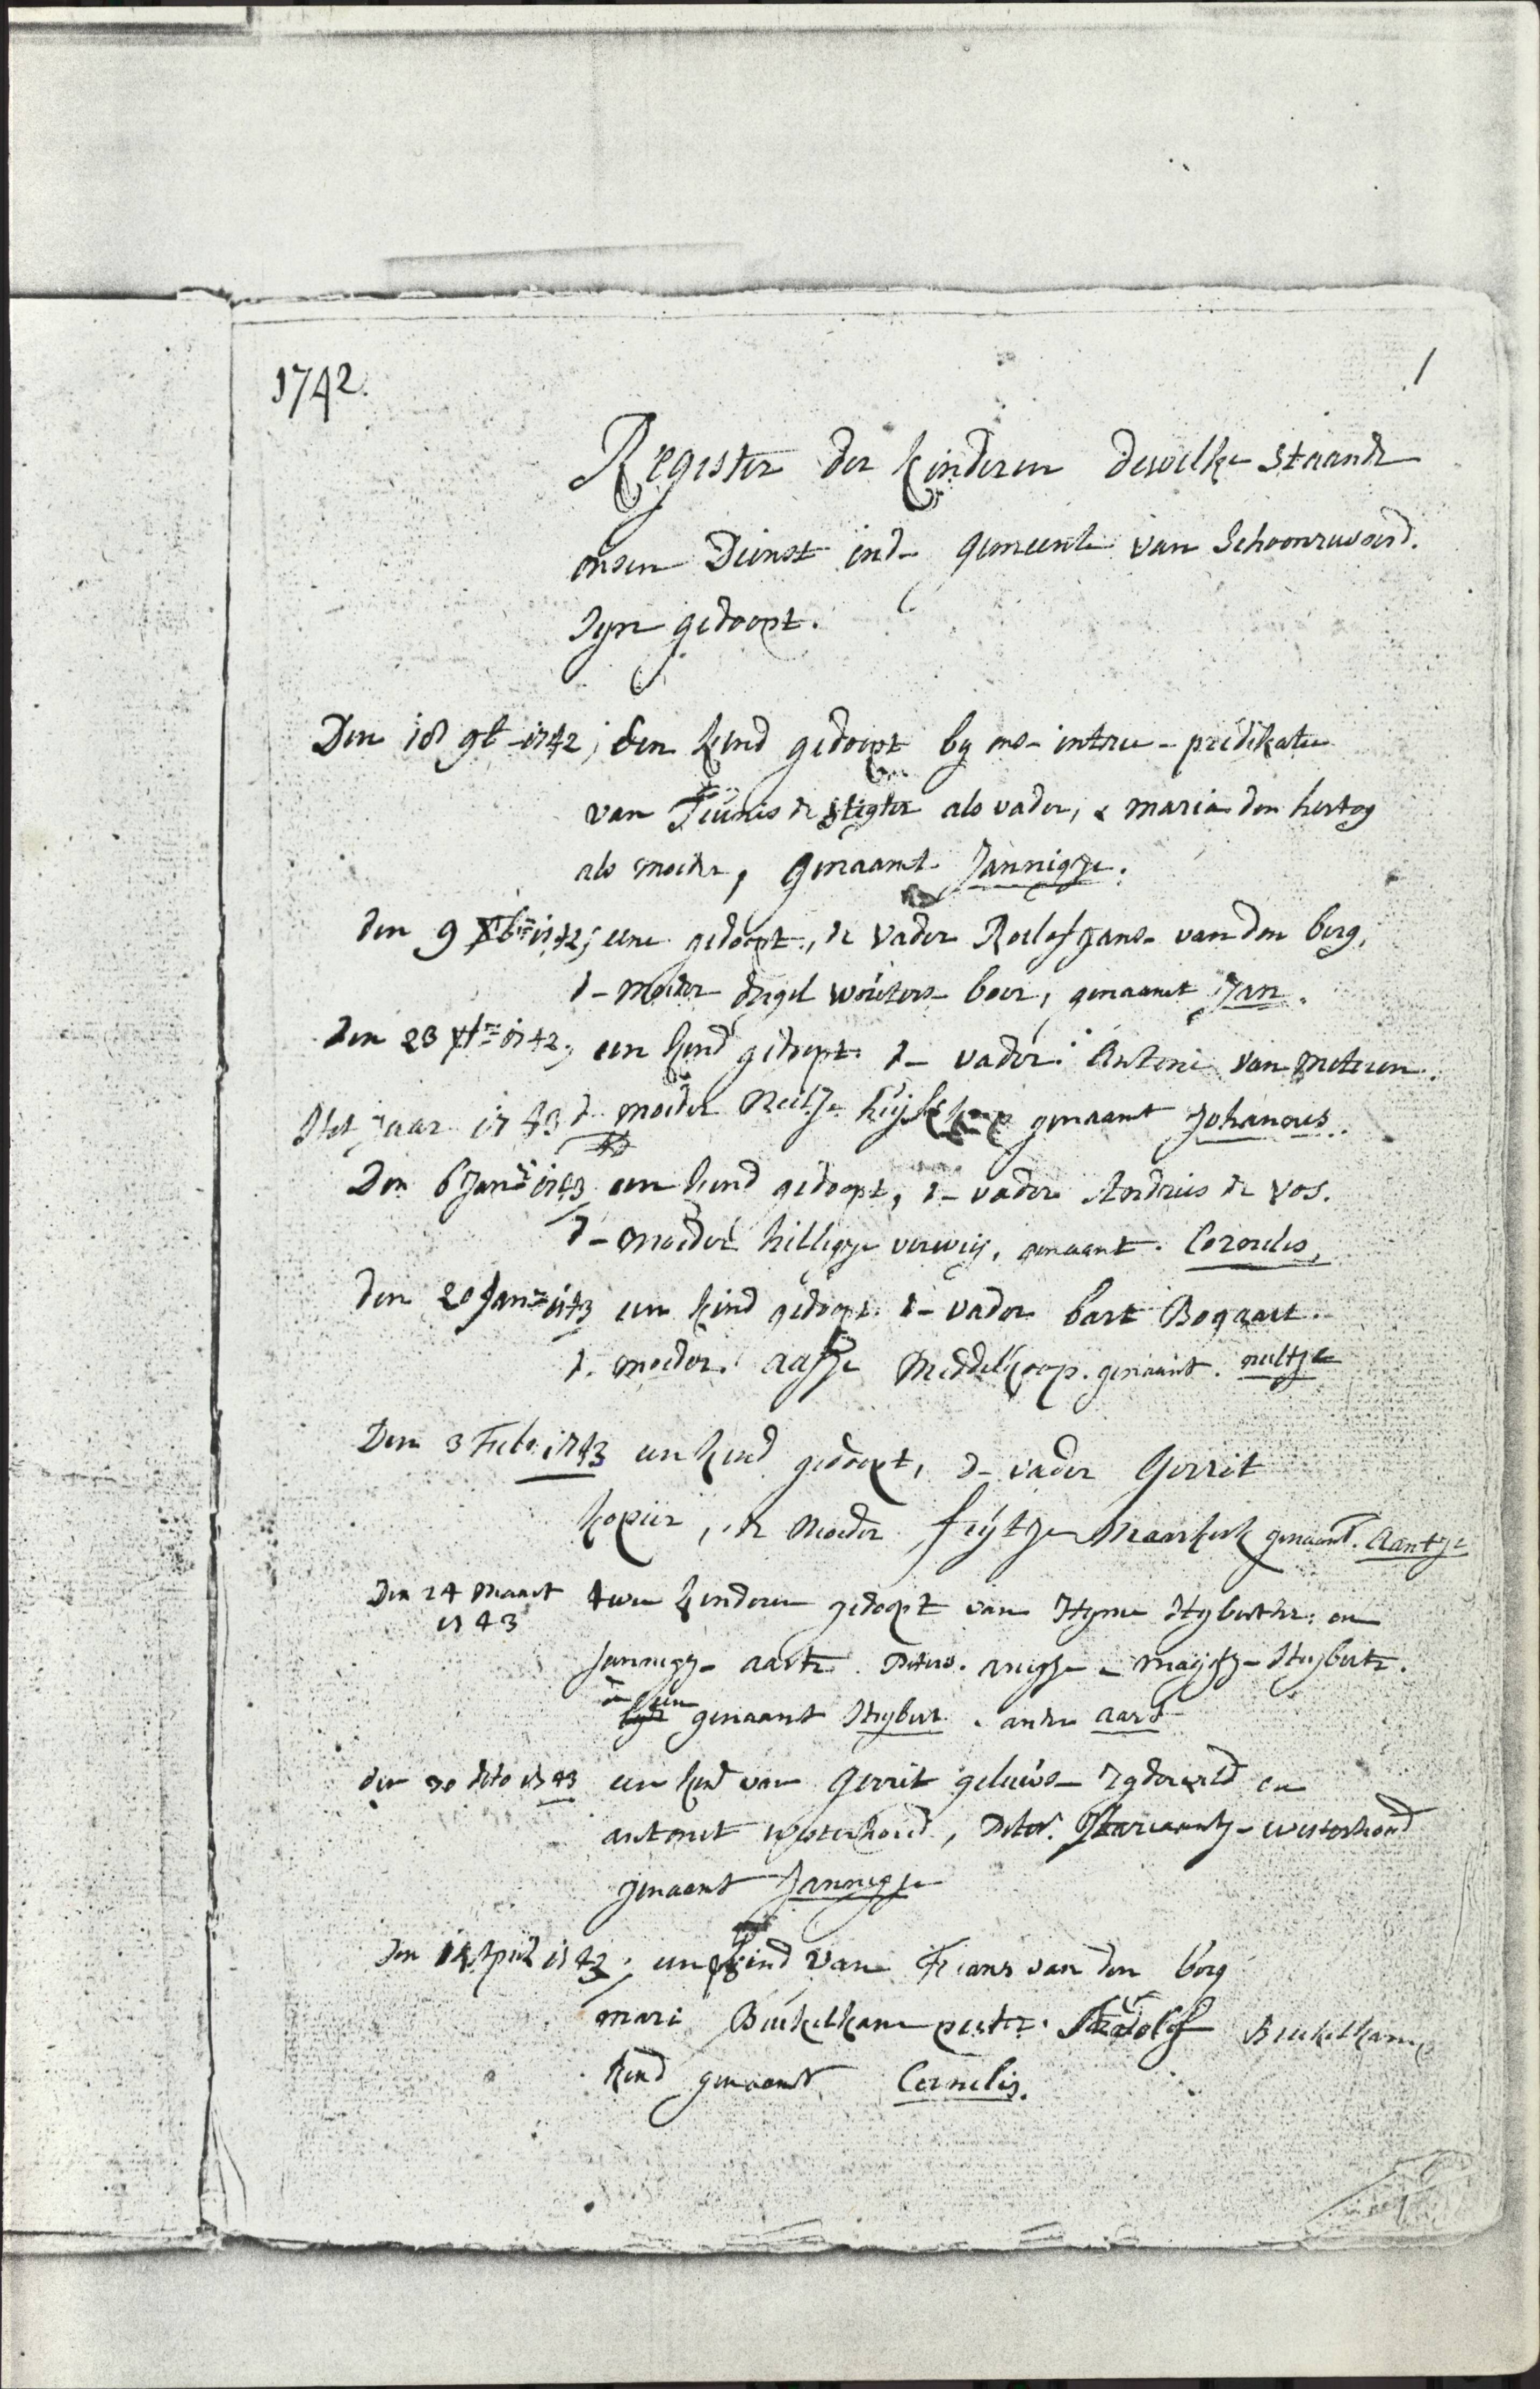 1742.
1
Register der kinderen dewelke staande
onsen Dienst inde gemeente van Schoonrewoerd.
Syn gedoopt.
Den 18 9b 1742, een kind gedoopt by ons intree-predikatie
van Teunis de Stigter als vader, & maria den hertog
als moeder, genaamt Jannigje.
den 9 Xbr 1742; een gedoopt, de vader Roelof Janse van den berg,
de moeder Wouters boer, genaamt Jan.
den 23 Xbr 1742, een kind gedoopt de vader Antoni van Meteren.
Het jaar 1743 de moeder Neeltje genaamt Johannes.
Den 6 Jan 1743 een kind gedoopt, de vader Andries de Vos.
de moeder hilligje verweij, genaamt. Cornelis,
den 20 Jan 1743 een kind gedoopt. de vader bart Bogaart.
de moeder. aaltje Middelkoop. genaamt. neeltje
Den 3 Feb. 1743 een kind gedoopt, de vader Gerrit
kopier, de Moeder fijtje Maarkerk genaamt. Aantje
Den 24 Maart twee kinderen gedoopt van en
1743
Jannigje aarts. Maijtje Huijberts.
de een genaamt Huybert. andre aart
den 30 dito 1743 een kind van Gerrit geleuwe en
antonet westerhoud, westerhoud
genaamt Jannigje
den 14 April 1743; een kind van Frans van den berg
mari Buekelkamp peeter. Buekelkamp
kind genaamt Cornelis.